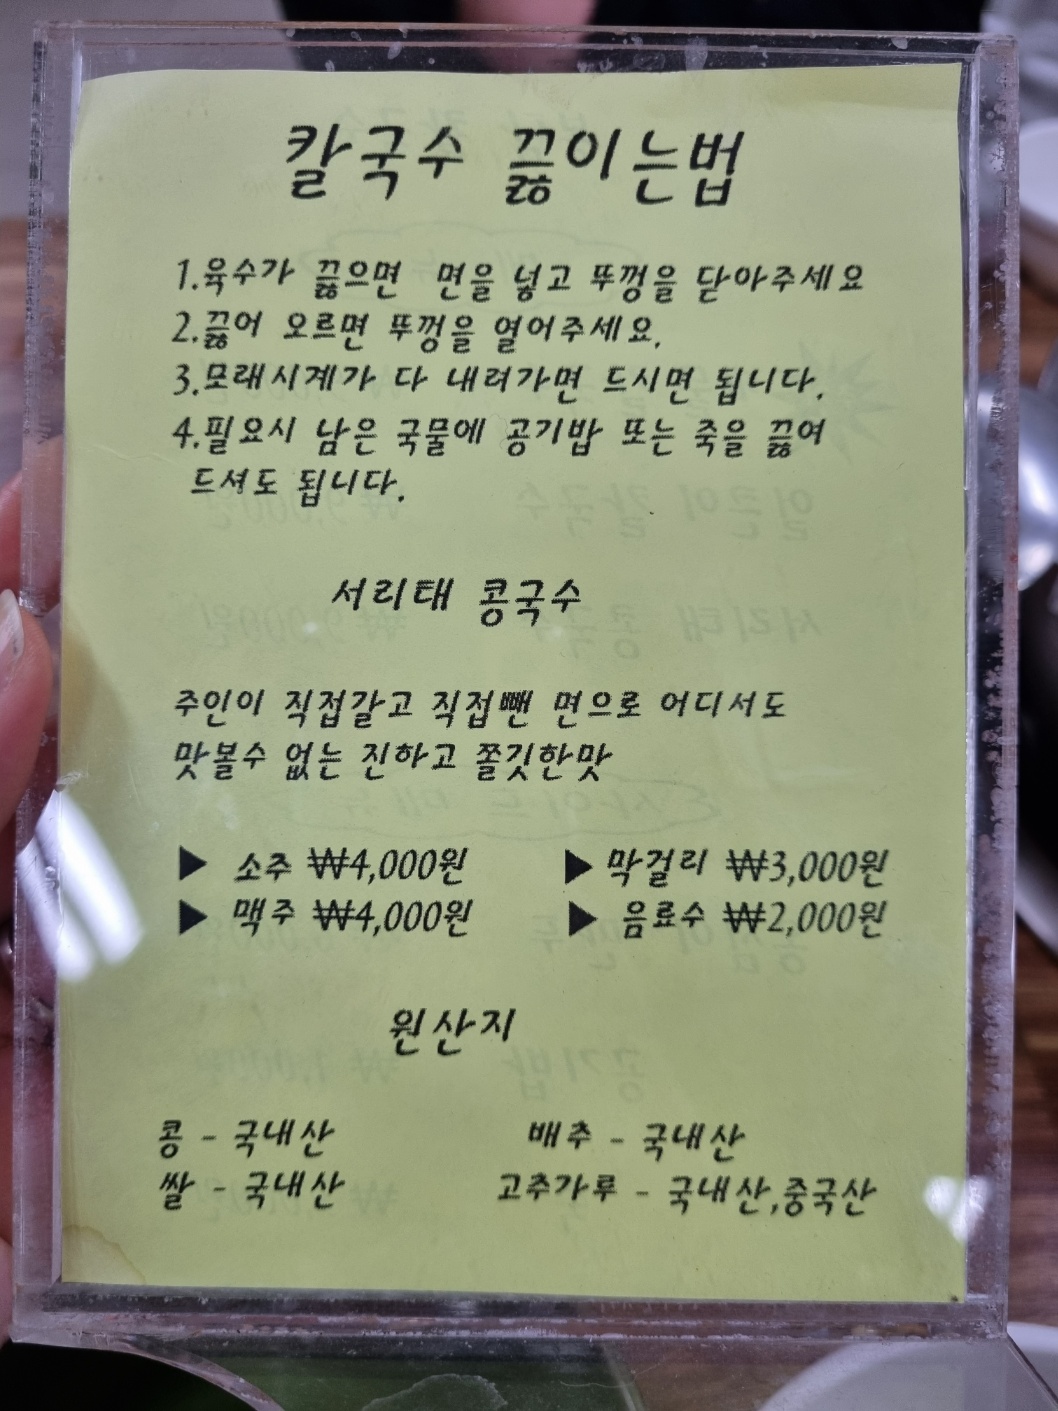 칼국수 끓이는법
1.육수가 끓으면 면을 넣고 뚜껑을 닫아주세요
2.끓어 오르면 뚜껑을 열어주세요.
3.모래시계가 다 내려가면 드시면 됩니다.
4.필요시 남은 국물에 공기밥 또는 죽을 끓여
드셔도 됩니다.
서리태 콩국수
주인이 직접갈고 직접뺀 면으로 어디서도
맛볼수 없는 진하고 쫄깃한맛
▶ 소주 ₩4,000원 ▶ 막걸리 ₩3,000원
▶ 맥주 ₩4,000원 ▶ 음료수 ₩2,000원
원산지
콩 - 국내산 배추 - 국내산
쌀 - 국내산 고추가루 - 국내산,중국산